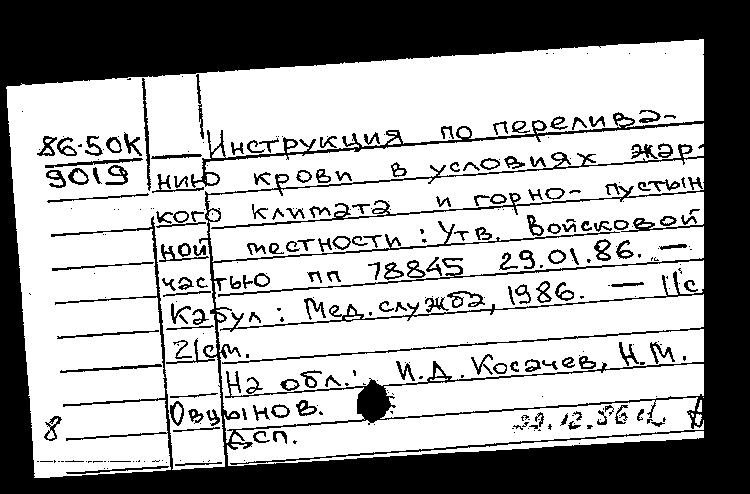 86-50К Инструкция по перелива-
9019 нию крови в условиях жар-
кого климата и горно-пустын
ной местности: Утв. Войсковой
частью пп 78845 29.01.86. —
Кабул: Мед. служба, 1986. — 11с.
21см.
На обл.: И.Д. Косачев, Н.М.
Овцынов.
8 Дсп. 29.12.86